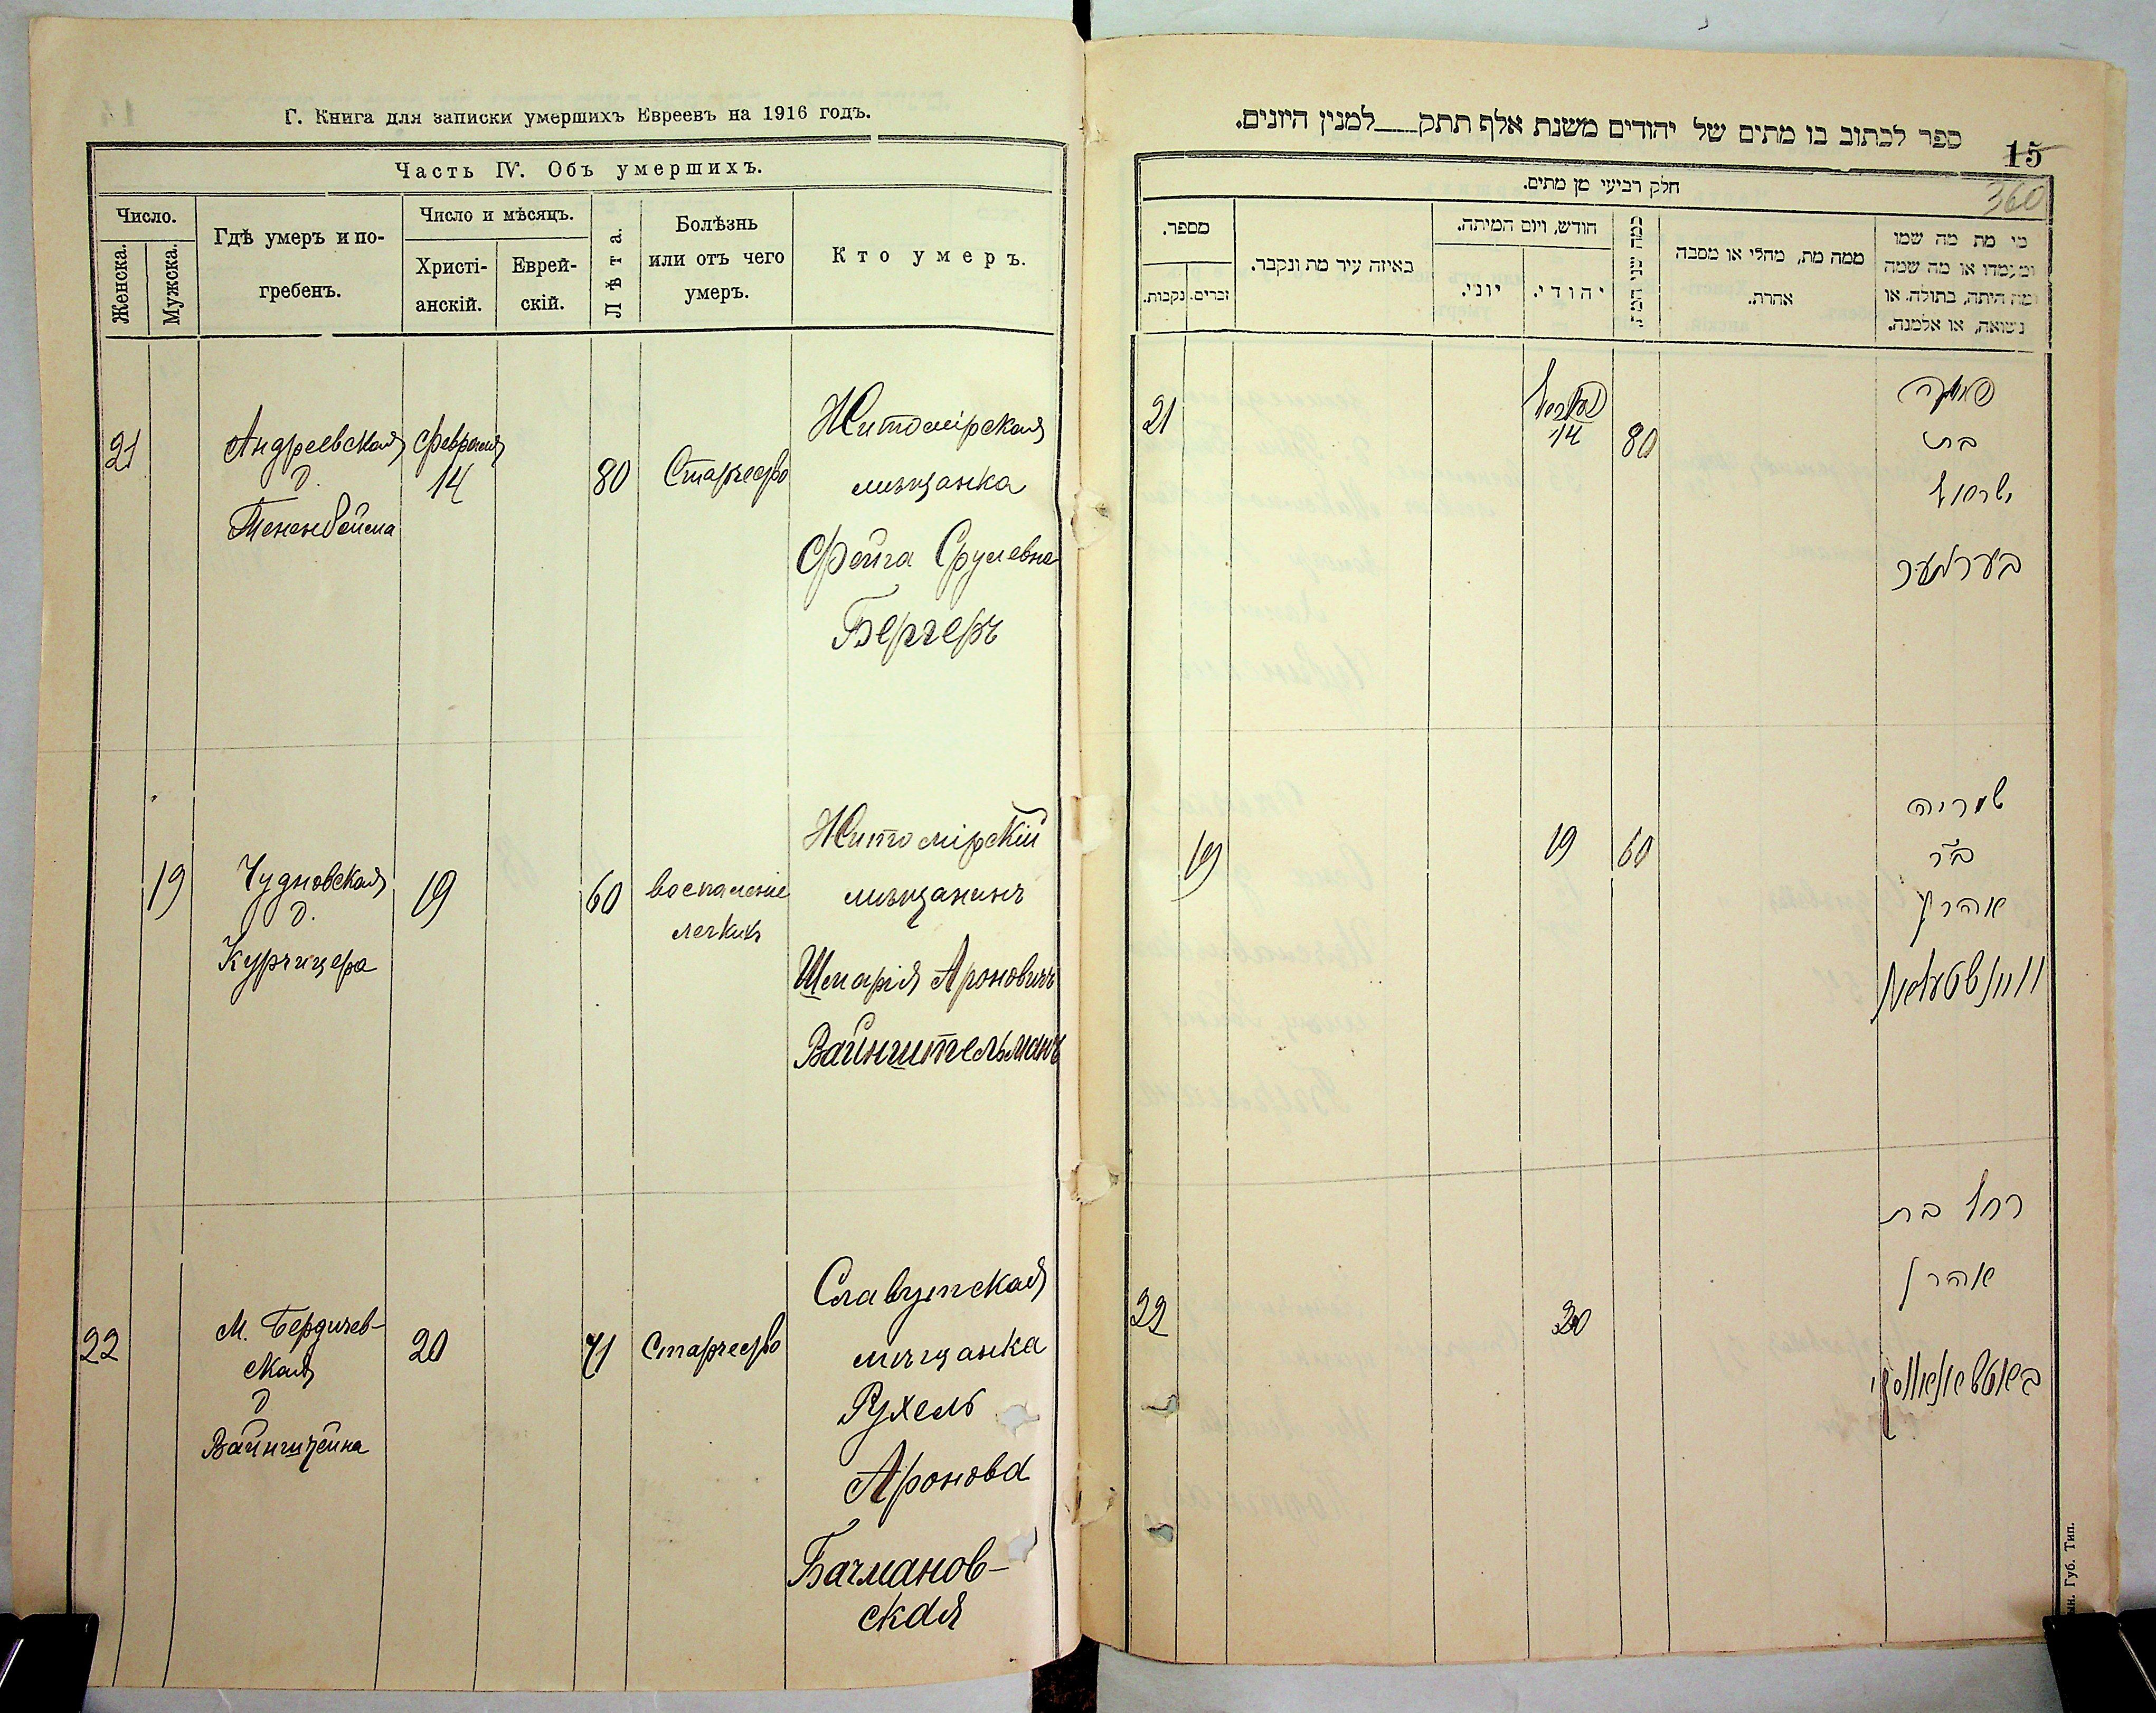 Г. Книга для записки умершихъ Евреевъ на 1916 годъ.
Часть IV. Объ умершихъ.
Число.
Женска.
Мужска.
Гдѣ умеръ и по-
гребенъ.
Число и мѣсяцъ.
Христі-
анскій.
Еврей-
скій.
Лѣта.
Болѣзнь
или отъ чего
умеръ.
Кто умеръ.
21
Андреевская
д.
Тененбойма
Февраля
14
80
Старчество
Житомірская
мѣщанка
Фейга Срулевна
Бергеръ
19
Чудновская
д.
Курчицера
19
60
воспаленіе
легкихъ
Житомірскій
мѣщанинъ
Шмарія Ароновичъ
Вайнштельманъ
22
М. Бердичев-
ская
д
Вайнштейна
20
71
Старчество
Славутская
мѣщанка
Рухель
Аронова
Бачманов-
ская
ספר לכתוב בו מתים של יהודים משנת אלף תתק___למנין היונים.
15
360
חלק רביעי מן מתים.
מספר.
זכרים.
נקבות.
באיזה עיר מת ונקבר.
חודש, ויום המיתה.
יוני.
יהודי.
כמה שני המת
ממה מת, מחלי או מסבה
אחרת.
מי מת מה שמו
ומעמדו או מה שמה
ומה היתה, בתולה. או
נשואה, או אלמנה.
21
14
80
פייגה
בת
ישראל
בערגער
19
19
60
שמריה
ב"ר
אהרן
22
20
רחל בת
אהרן
ын. Губ. Тип.